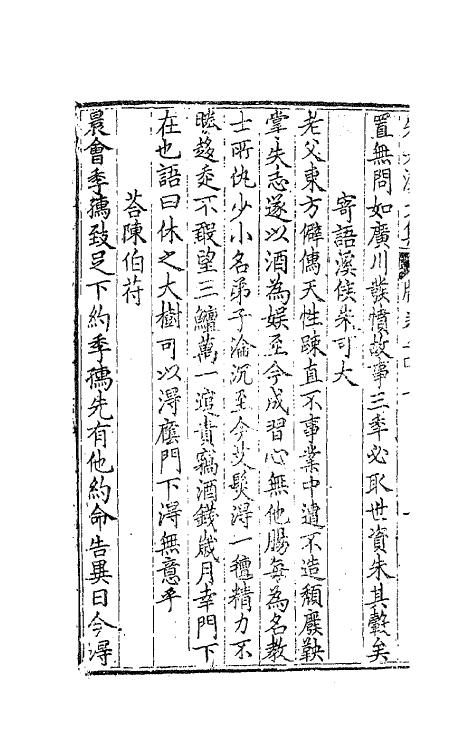 置無問如廣川發憤故事三年必取世資朱其轂矣
寄語溪侯朱可大
老父東方僻儁天性踈直不事業中遭不造頽廢鞅
掌失志遂以酒為娱至今成習心無他腸每為名教
士所仇少小名弟子淪沉至今艾髮得一氊精力不
膯趍走不敢望三鱣萬一逋責竊酒錢歳月幸門下
在也語曰休之大樹可以得廕門下得無意乎
荅陳伯苻
晨會季孺致足下約季孺先有他約命告異日今得